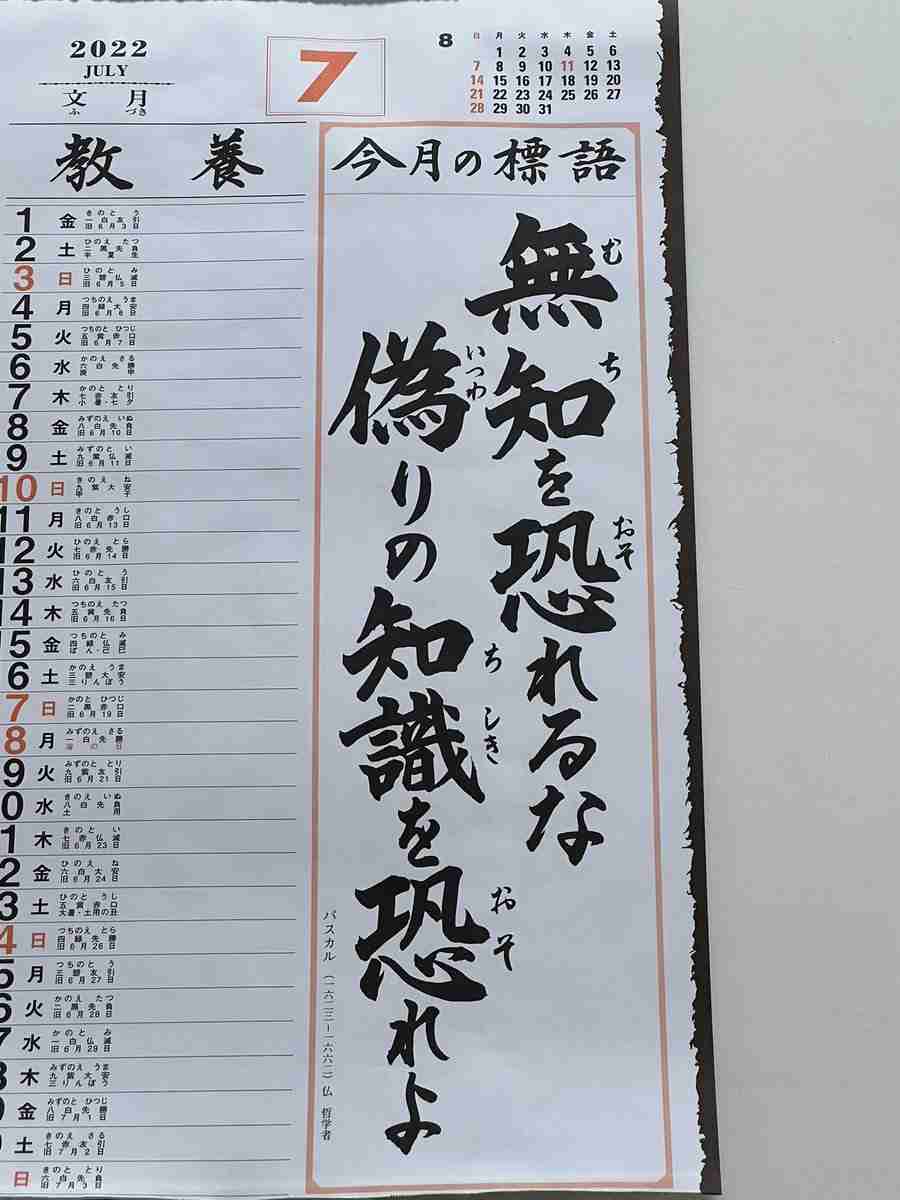 2022
JULY
文月
ふづき
7
8
日 月 火 水 木 金 土
1 2 3 4 5 6
7 8 9 10 11 12 13
14 15 16 17 18 19 20
21 22 23 24 25 26 27
28 29 30 31
教養
1 金 きのと う
一白友引
旧6月3日
2 土 ひのえ たつ
二黒先負
半夏生
3 日 ひのと み
三碧仏滅
旧6月5日
4 月 つちのえ うま
四緑大安
旧6月6日
5 火 つちのと ひつじ
五黄赤口
旧6月7日
6 水 かのえ さる
六白先勝
庚申
7 木 かのと とり
七赤友引
小暑・七夕
8 金 みずのえ いぬ
八白先負
旧6月10日
9 土 みずのと い
九紫仏滅
旧6月11日
10 日 きのえ ね
九紫大安
甲子
11 月 きのと うし
八白赤口
旧6月13日
12 火 ひのえ とら
七赤先勝
旧6月14日
13 水 ひのと う
六白友引
旧6月15日
14 木 つちのえ たつ
五黄先負
旧6月16日
15 金 つちのと み
四緑仏滅
ぼん・己巳
6 土 かのえ うま
三碧大安
三りんぼう
7 日 かのと ひつじ
二黒赤口
旧6月19日
8 月 みずのえ さる
一白先勝
海の日
9 火 みずのと とり
九紫友引
旧6月21日
0 水 きのえ いぬ
八白先負
土用
1 木 きのと い
七赤仏滅
旧6月23日
2 金 ひのえ ね
六白大安
旧6月24日
3 土 ひのと うし
五黄赤口
大暑・土用の丑
4 日 つちのえ とら
四緑先勝
旧6月26日
5 月 つちのと う
三碧友引
旧6月27日
6 火 かのえ たつ
二黒先負
旧6月28日
7 水 かのと み
一白仏滅
旧6月29日
木 みずのえ うま
九紫大安
三りんぼう
金 みずのと ひつじ
八白先勝
旧7月1日
土 きのえ さる
七赤友引
旧7月2日
日 きのと とり
六白先負
旧7月3日
今月の標語
無知を恐れるな
む ち おそ
偽りの知識を恐れよ
いつわ ち しき おそ
パスカル (一六二三―一六六二) 仏 哲学者